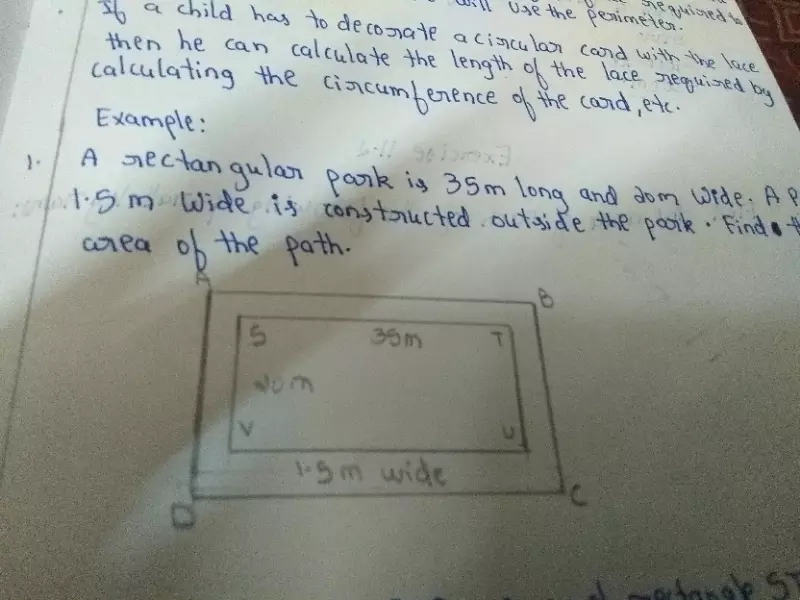 will use the perimeter. required to
If a child has to decorate a circular card with the lace
then he can calculate the length of the lace required by
calculating the circumference of the card, etc.
Example:
1. A rectangular park is 35m long and 20m wide. A p
1.5 m wide is constructed outside the park. Find t
area of the path.
A B
S 35m T
20m
V U
1.5m wide
D C
rectangle ST